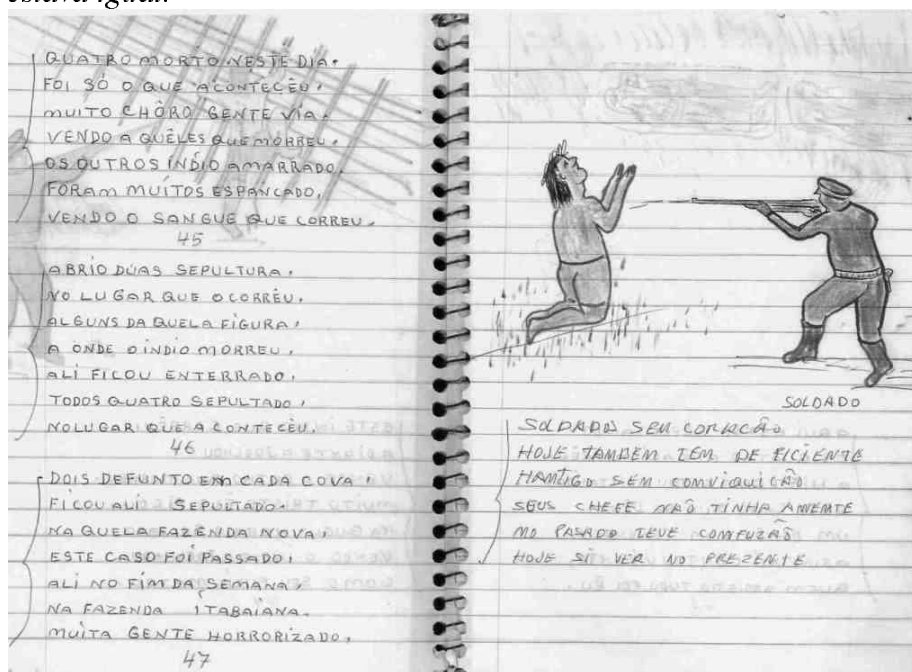 estava igual.
QUATRO MORTO NESTE DIA.
FOI SÓ O QUE ACONTECÊU.
MUITO CHÔRO GENTE VIA.
VENDO A QUÊLES QUE MORREU.
OS OUTROS ÍNDIO AMARRADO.
FORAM MUÍTOS ESPANCADO,
VENDO O SANGUE QUE CORREU.
45
ABRIO DUAS SEPULTURA.
NO LUGAR QUE OCORRÊU.
ALGUNS DA QUELA FIGURA,
A ONDE O ÍNDIO MORREU.
ALI FICOU ENTERRADO.
TODOS QUATRO SEPULTADO,
NO LUGAR QUE A CONTECÊU.
46
DOIS DEFUNTO EM CADA COVA,
FICOU ALI SEPULTADO.
NA QUELA FAZENDA NOVA,
ESTE CASO FOI PASSADO,
ALI NO FIM DA SEMANA,
NA FAZENDA ITABAIANA.
MUITA GENTE HORRORIZADO,
47
SOLDADO
SOLDADOS SEU CORACÃO
HOJE TAMBEM TEM DE FICIENTE
HANTIGO SEM CONVIQUICÃO
SEUS CHEFE NÃO TINHA AMEMTE
NO PASADO TEVE COMFUZÃS
HOJE SI VER NO PREZENTE